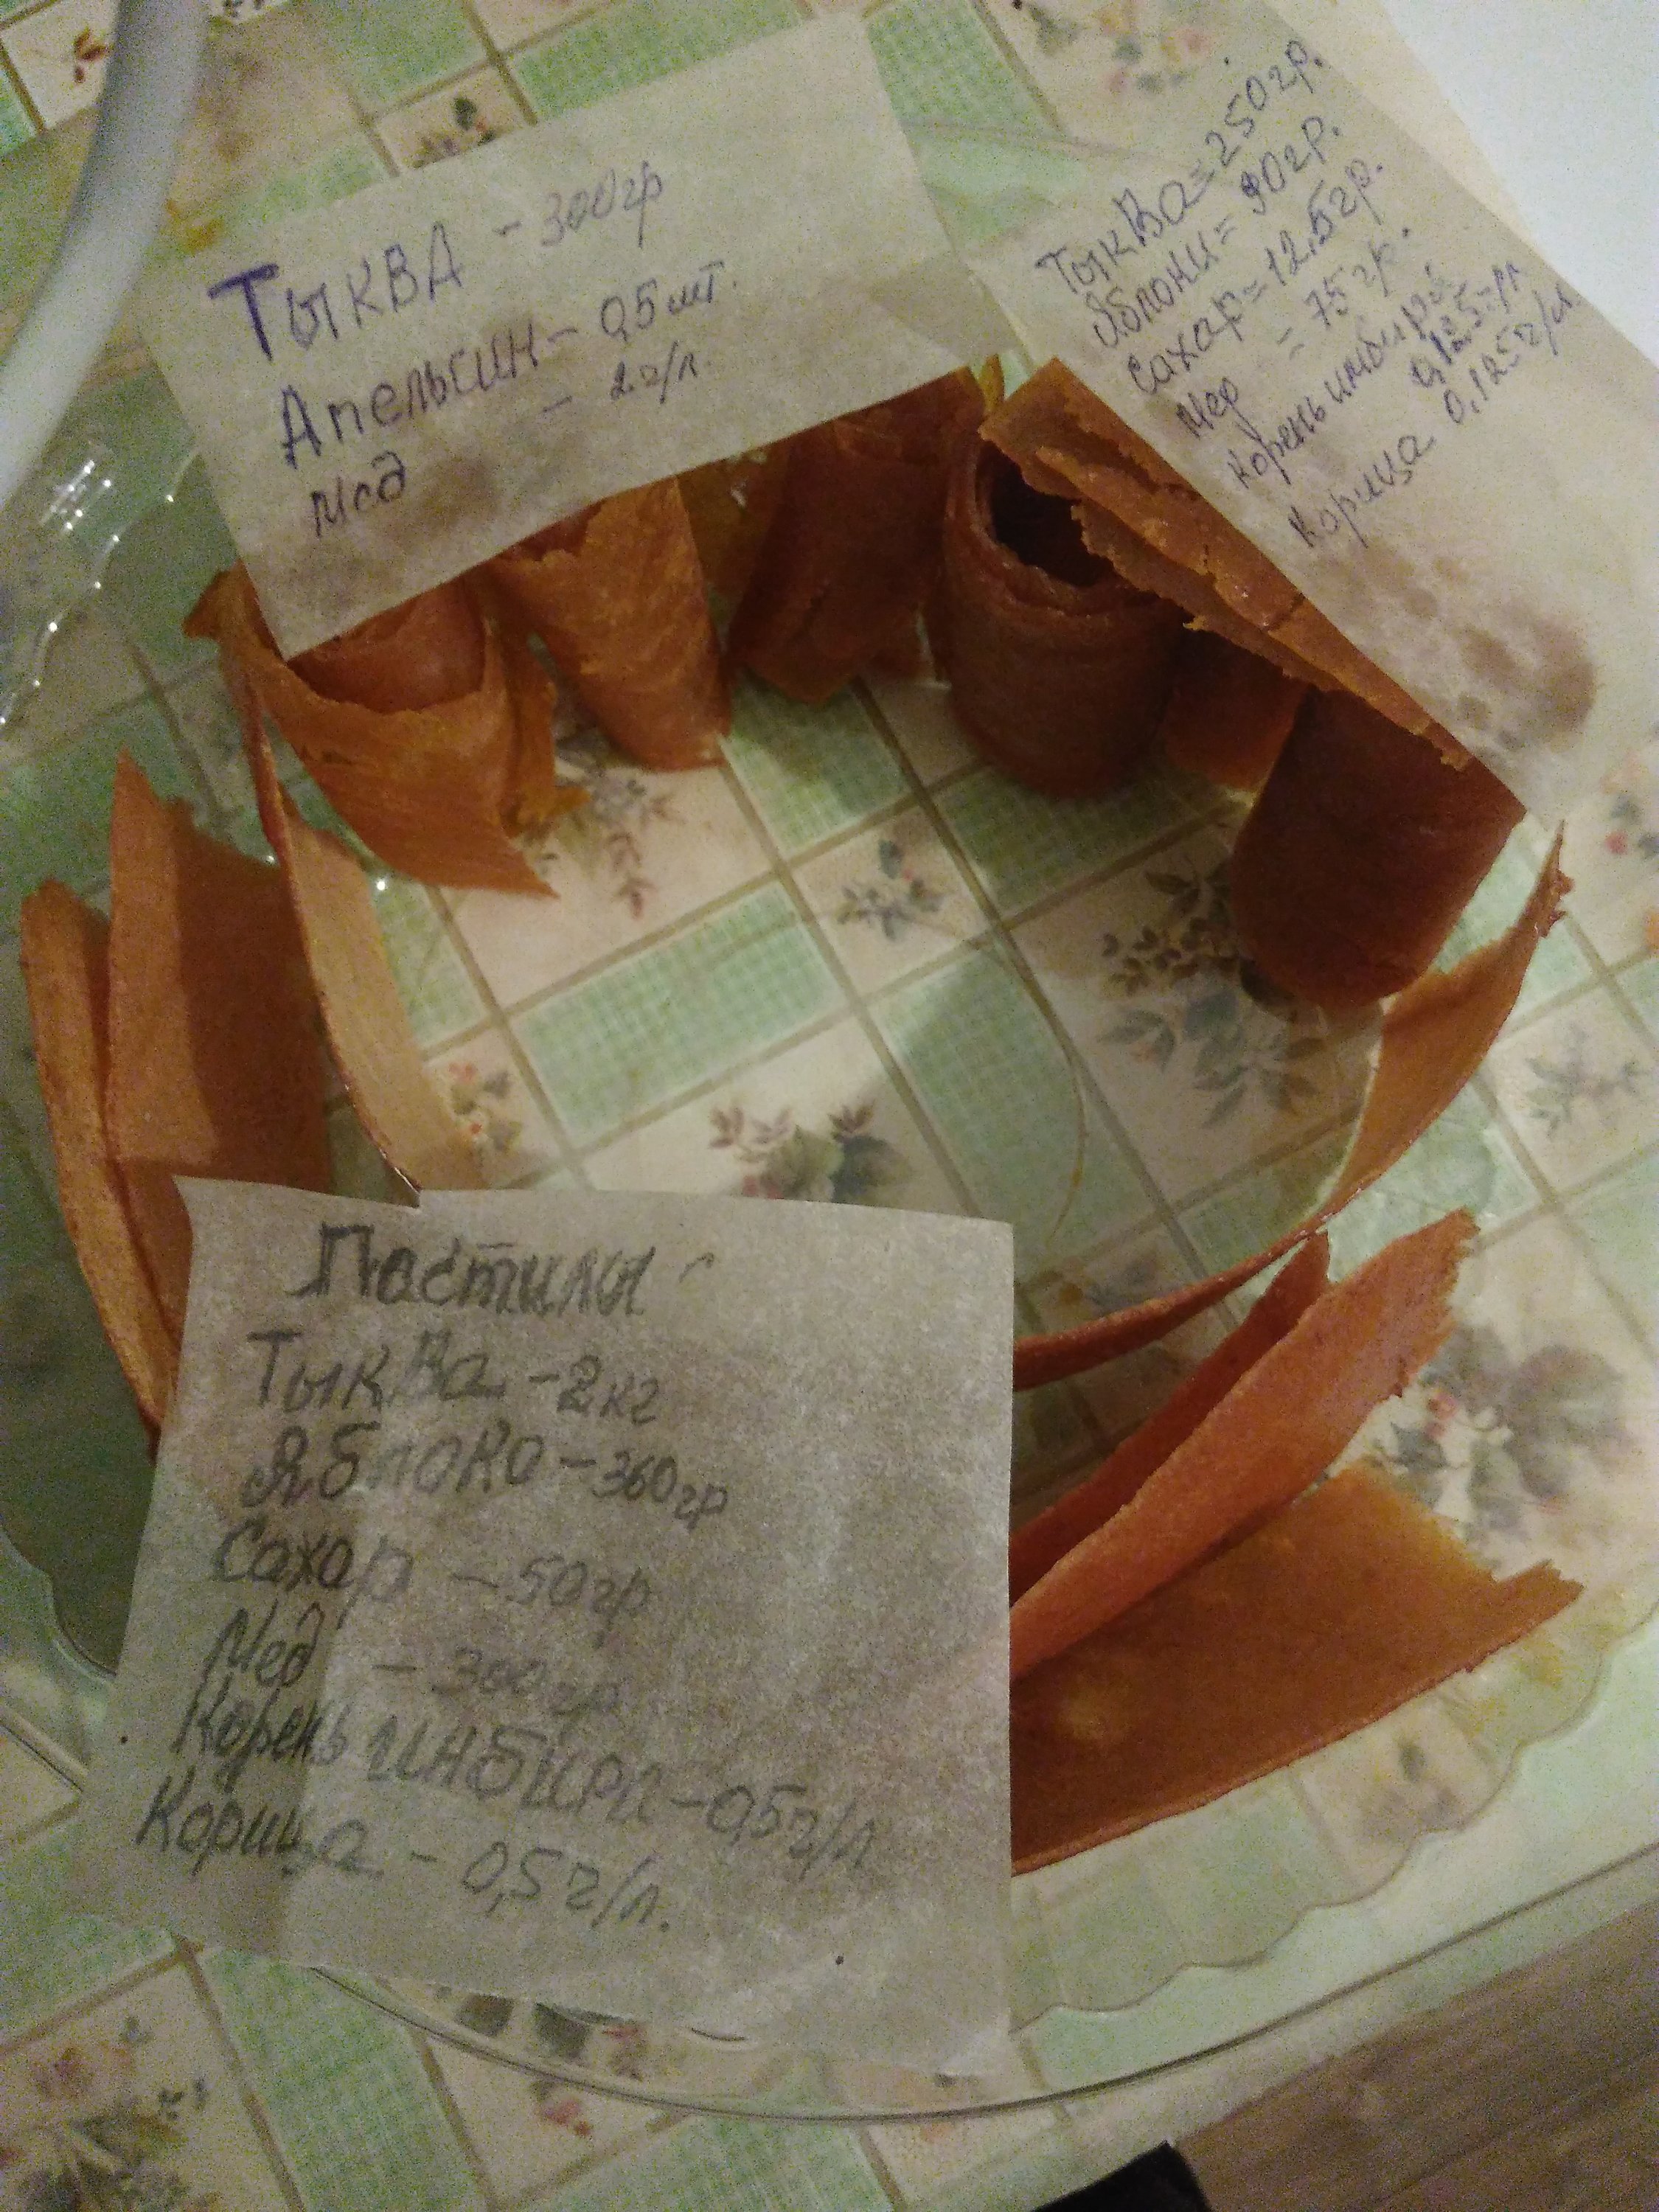 Тыква - 300гр
Апельсин - 0,5 шт.
Мед - 2 ч/л.
Тыква = 250 гр.
Яблоки = 90 гр.
Сахар = 12,5 гр.
Мед = 75 гр.
Корень имбиря
0,125 ч/л
Корица 0,125 ч/л.
Пастилы
Тыква - 2 кг
Яблоко - 360 гр
Сахар - 50 гр
Мед - 300 гр
Корень инбиря - 0,5 ч/л
Корица - 0,5 ч/л.